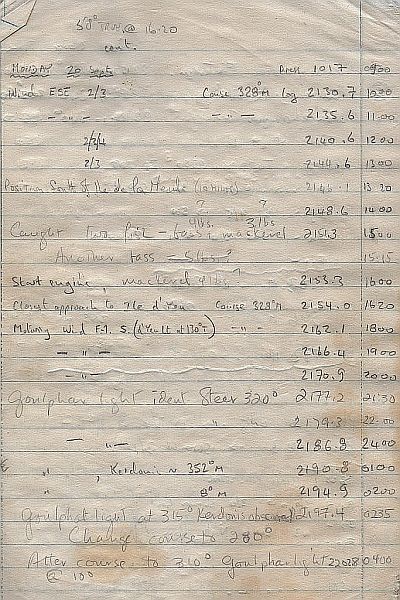 @ 16.20
cont.
MONDAY 20 Sept. Press 1017 0900
Wind ESE 2/3 Course 328°M log 2130.7 1000
- " - - " - 2135.6 11.00
2/3/4 2140.6 1200
2/3 2144.6 1300
Position South 2146.1 13 20
? ? 2148.6 1400
4lbs. 3lbs
Caught two fish - bass, mackerel 2151.3 1500
Another bass 5lbs? 15.15
Start engine, mackerel 2153.3 1600
Closest approach to Ile d'Yeu Course 328°M 2154.0 1620
Motoring Wind F.1. S. (d'Yeu Lt at 130°T) - " - 2162.1 1800
- " - 2166.4 1900
- " - 2170.9 2000
Goulphar light ident Steer 320° 2177.2 21:30
" " 2179.3 22.00
- " - 2186.8 2400
" , Kerdonis ≈ 352°M 2190.8 0100
" 8°M 2194.9 0200
Goulphar light at 315° Kerdonis obscured 2197.4 0235
Change course to 280°
Alter course to 310° Goulphar light 22028 0400
@ 10°